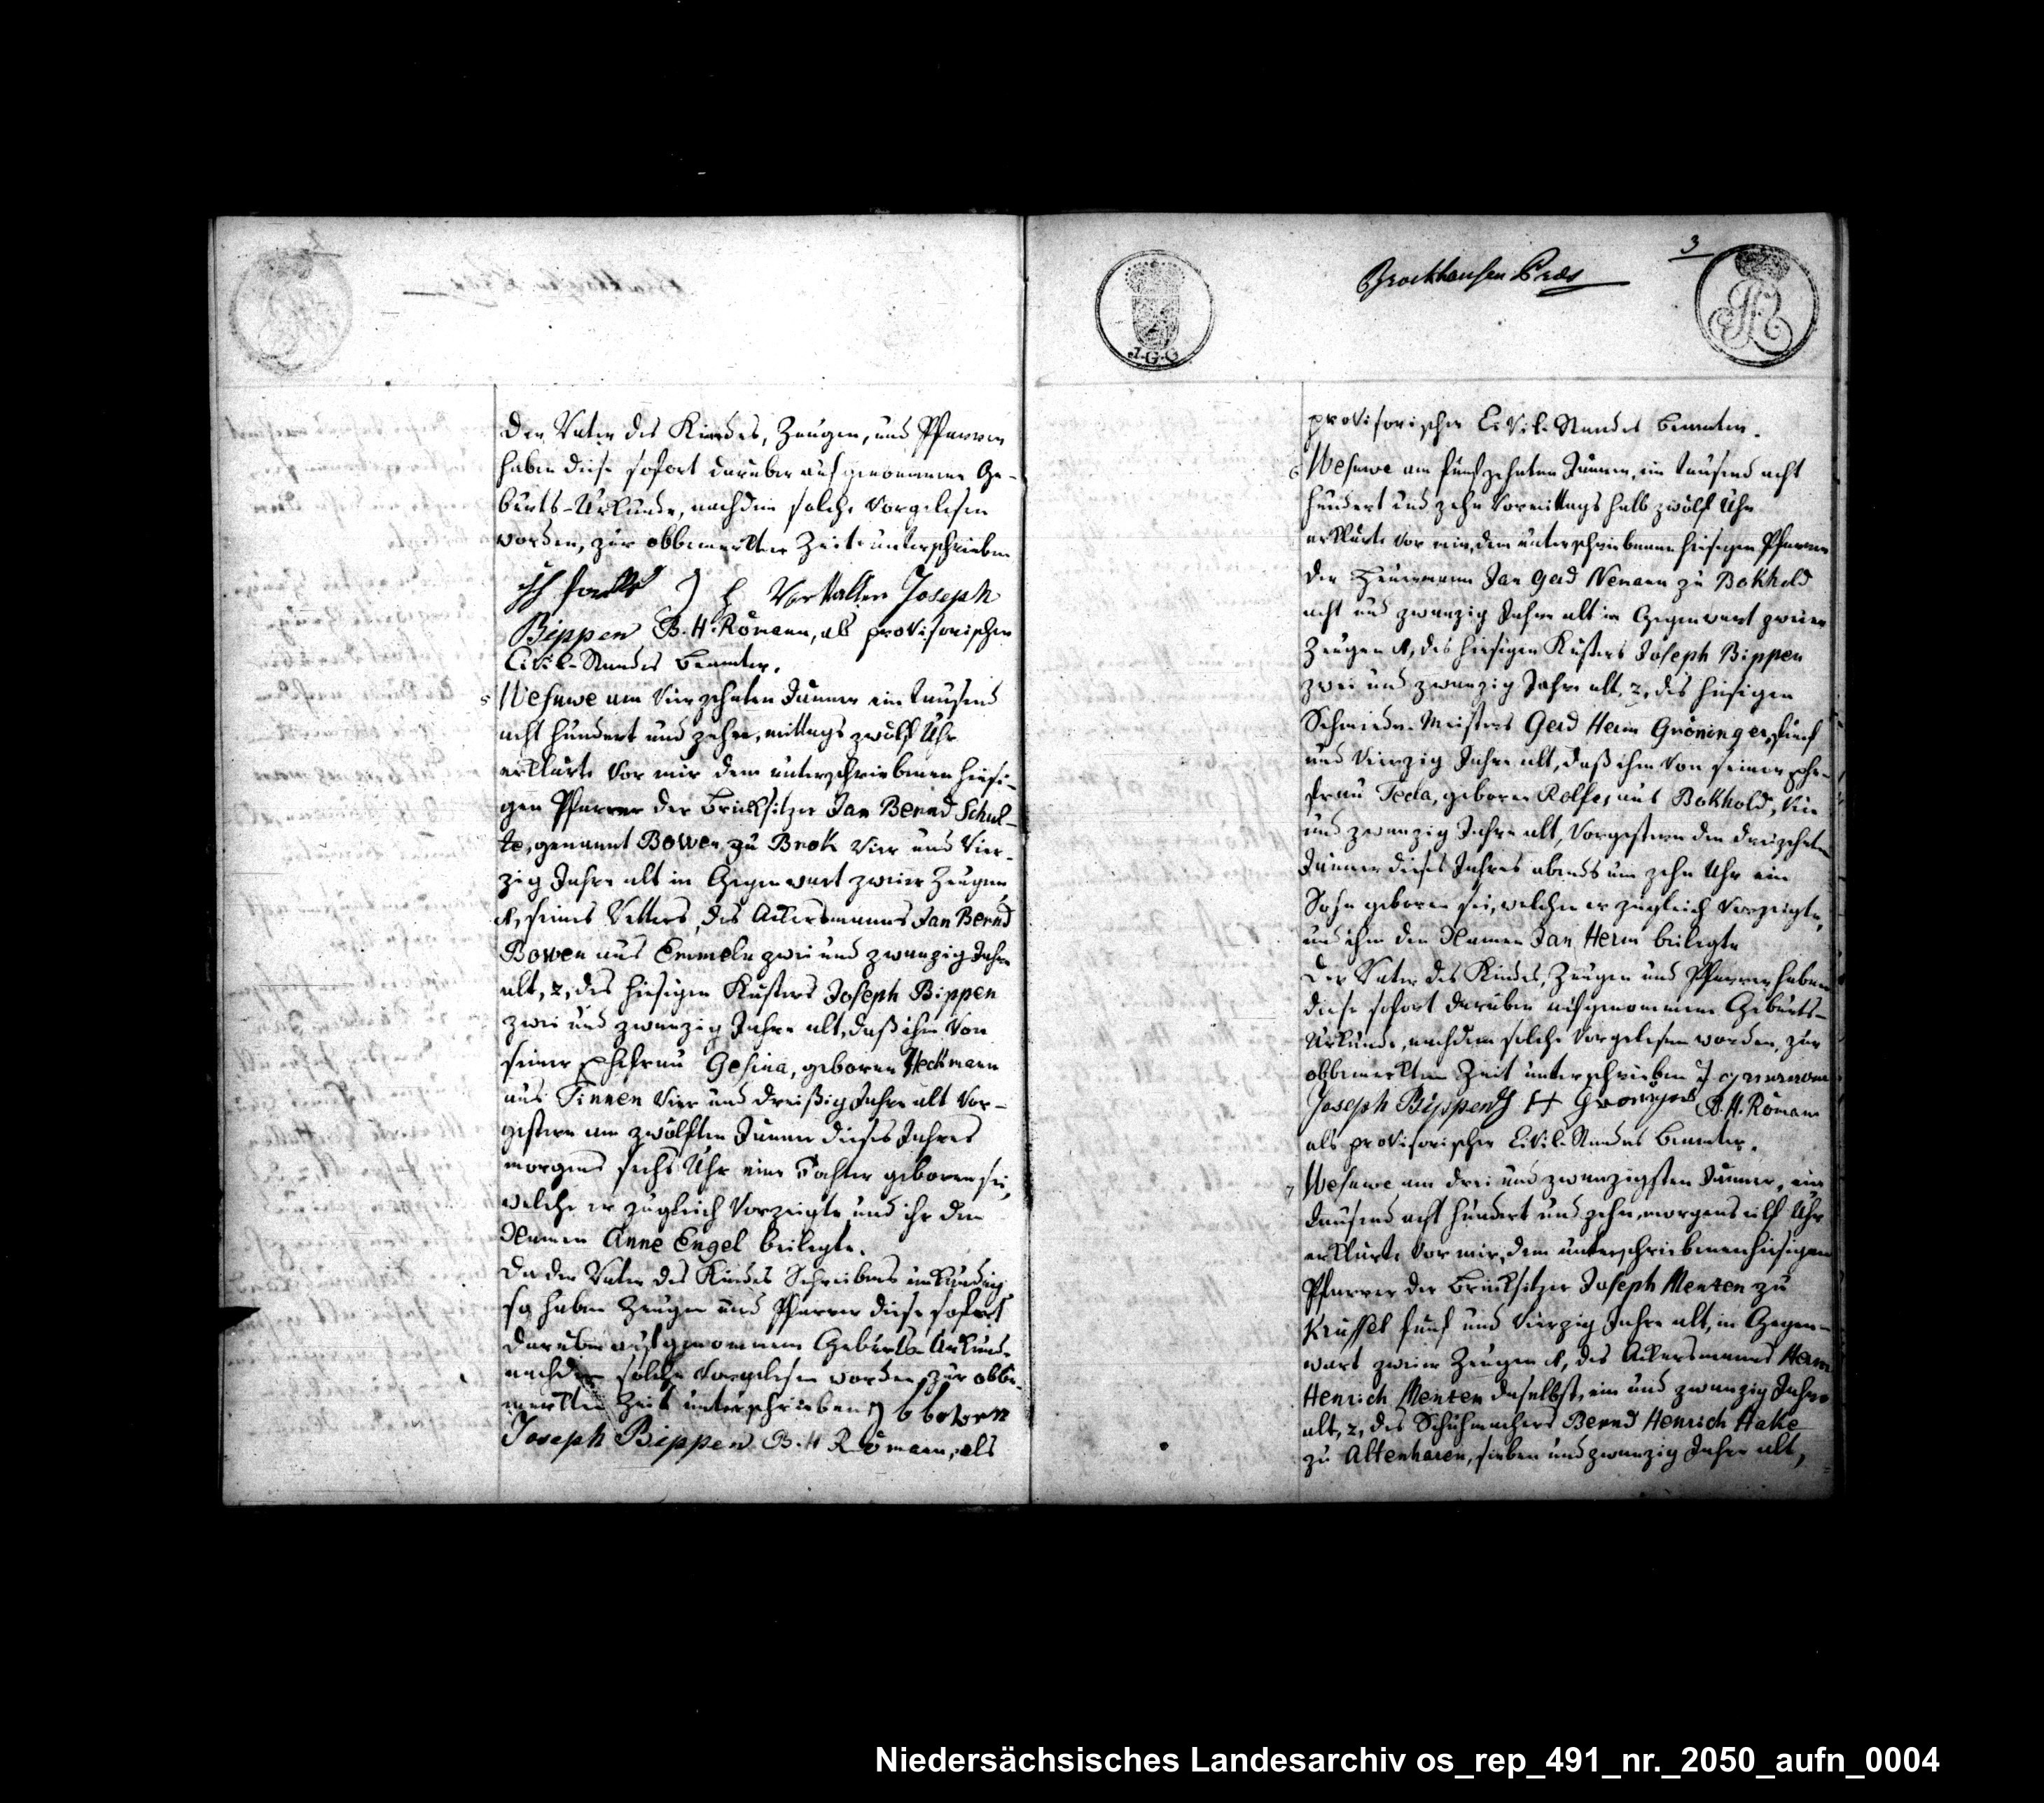 Der Vater des Kindes, Zeugen, und Pfarrer
haben diese sofort darüber aufgenommene Ge-
burts-Urkunde, nachdem solche vorgelesen
worden, zur obbemerkten Zeit unterschrieben
Joseph
Bippen B. H. Römann, als provisorischer
Civil-Standes Beamter.
5 Wesuwe am vierzehnten Jänner ein tausend
acht hundert und zehn, mittags zwölf Uhr
erklärte vor mir dem unterschriebenen hiesi-
gen Pfarrer der Brinksitzer Jan Bernd Schul-
te, genannt Bower zu Brok vier und vier-
zig Jahre alt in Gegenwart zweier Zeugen
1, seines Vetters, des Ackersmanns Jan Bernd
Bowen aus Emmeln zwei und zwanzig Jahre
alt, 2, des hiesigen Küsters Joseph Bippen
zwei und zwanzig Jahre alt, daß ihm von
seiner Ehefrau Gesina, geboren Heckmann
aus Tinnen vier und dreißig Jahre alt vor-
gestern am zwölften Jänner dieses Jahres
morgens sechs Uhr eine Tochter geboren sei,
welche er zugleich vorzeigte und ihr den
Namen Anne Engel beilegte.
Da der Vater des Kindes Schreibens unkundig
so haben Zeugen und Pfarrer diese sofort
darüber aufgenommene Geburts-Urkunde
nachdem solche vorgelesen worden, zur obbe-
merkten Zeit unterschrieben J b bowen
Joseph Bippen B. H Römann, als
3
Brockhausen Præs
J.G.G
provisorischer Civil-Standes Beamter.
6 Wesuwe am fünfzehnten Jänner, ein tausend acht
hundert und zehn vormittags halb zwölf Uhr
erklärte vor mir, dem unterschriebenen hiesigen Pfarrer
der Heuermann Jan Gerd Nemann zu Bokhold
acht und zwanzig Jahre alt in Gegenwart zweier
Zeugen 1, des hiesigen Küsters Joseph Bippen
zwei und zwanzig Jahre alt, 2, des hiesigen
Schmiede-Meisters Gerd Herm Gröninger, fünf
und vierzig Jahre alt, daß ihm von seiner Ehe-
frau Tecla, geboren Rolfes aus Bokhold, vier
und zwanzig Jahre alt, vorgestern den dreizehnten
Jänner dieses Jahres abends um zehn Uhr ein
Sohn geboren sei, welchen er zugleich vorzeigte,
und ihm den Namen Jan Herm beilegte
Der Vater des Kindes, Zeugen und Pfarrer haben
diese sofort darüber aufgenommene Geburts-
Urkunde, nachdem solche vorgelesen worden, zur
obbemerkten Zeit unterschrieben
Joseph Bippen B. H. Römann
als provisorischer Civil-Standes Beamter.
7 Wesuwe am drei und zwanzigsten Jänner, ein
tausend acht hundert und zehn, morgens eilf Uhr
erklärte vor mir, dem unterschriebenen hiesigen
Pfarrer der Brinksitzer Joseph Menten zu
Krüssel fünf und vierzig Jahre alt, in Gegen-
wart zweier Zeugen 1, des Ackersmanns Herm
Henrich Menten daselbst, ein und zwanzig Jahre
alt, 2, des Schuhmachers Bernd Henrich Hake
zu Altenharen, sieben und zwanzig Jahre alt,
Niedersächsisches Landesarchiv os_rep_491_nr._2050_aufn_0004